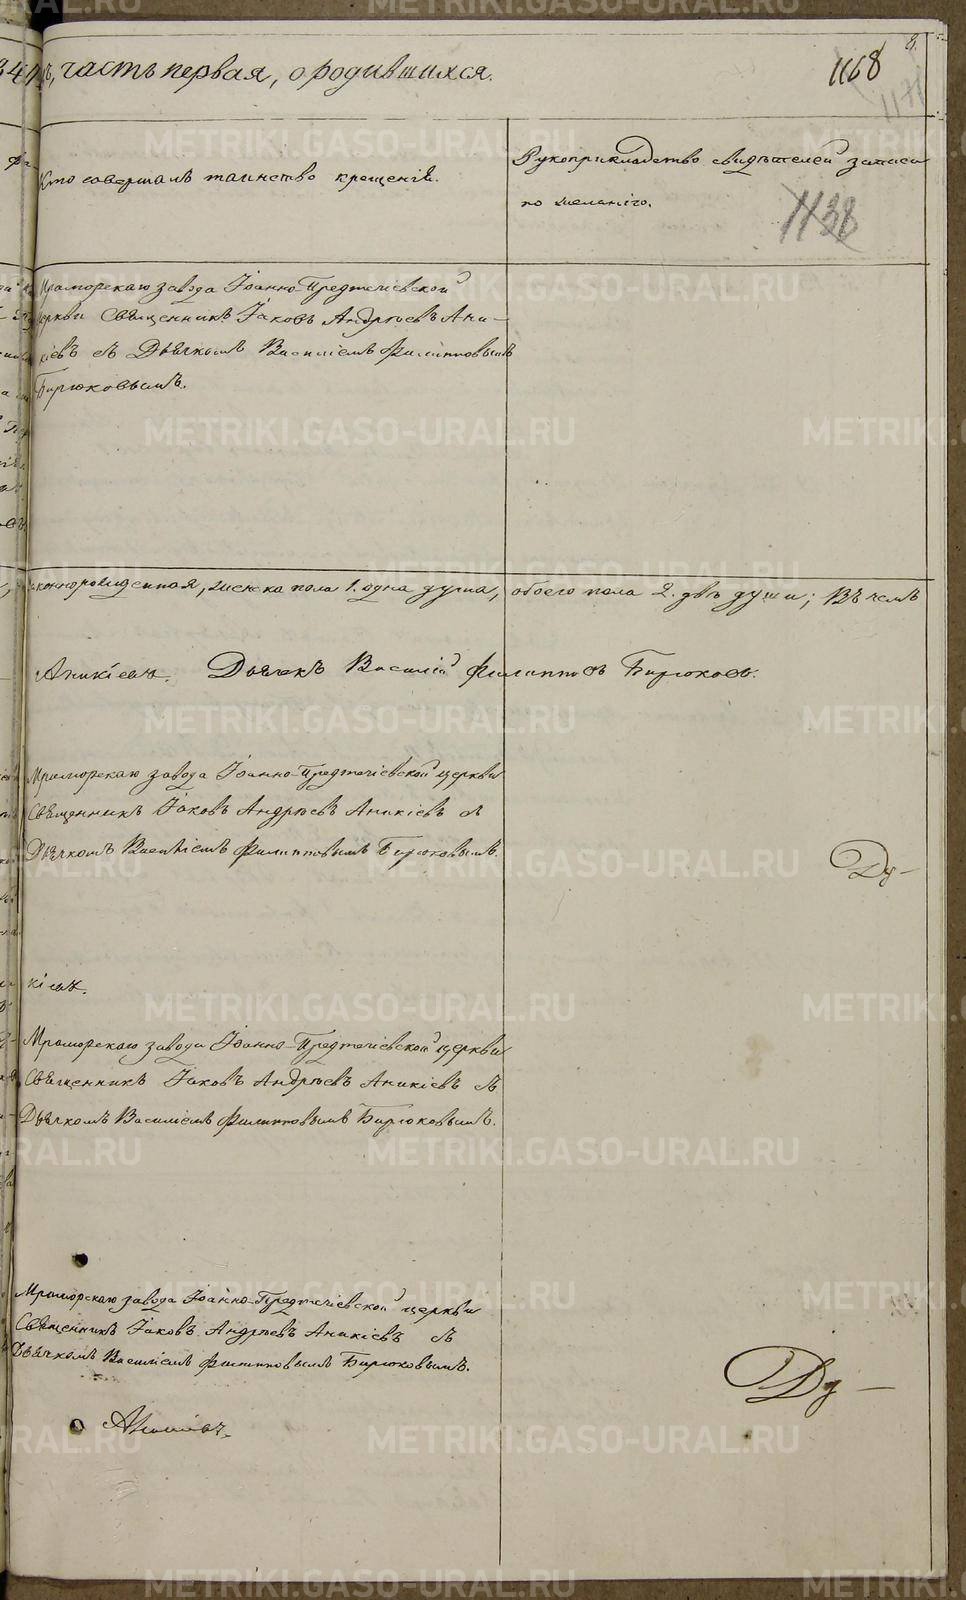 8.
часть первая, о родившихся.
1168
Кто совершалъ таинство крещенія.
Рукоприкладство свидѣтелей записи
по желанію.
1138
Мраморскаго завода Іоанно-Предтечіевской
церкви Священникъ Іаковъ Андрѣевъ Ани-
кіевъ съ Дьячкомъ Василіемъ Филипповымъ
Бирюковымъ.
законнорожденная, женска пола 1. одна душа, обоего пола 2. двѣ души; Въ чемъ
Аникіевъ. Дьячекъ Василій Филипповъ Бирюковъ.
Мраморскаго завода Іоанно-Предтечіевской церкви
Священникъ Іаковъ Андрѣевъ Аникіевъ съ
Дьячкомъ Василіемъ Филипповымъ Бирюковымъ.
Ду-
кіевъ.
Мраморскаго завода Іоанно-Предтечіевской церкви
Священникъ Іаковъ Андрѣевъ Аникіевъ съ
Дьячкомъ Василіемъ Филипповымъ Бирюковымъ.
Мраморскаго завода Іоанно-Предтечіевской церкви
Священникъ Іаковъ Андрѣевъ Аникіевъ съ
Дьячкомъ Василіемъ Филипповымъ Бирюковымъ.
Ду-
Аникіевъ.
METRIKI.GASO-URAL.RU